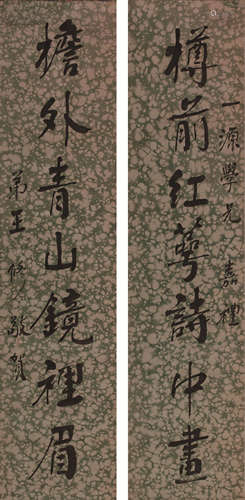 一源學兄嘉禮
樽前紅萼詩中畫
檐外青山鏡裡眉
弟王修敬賀